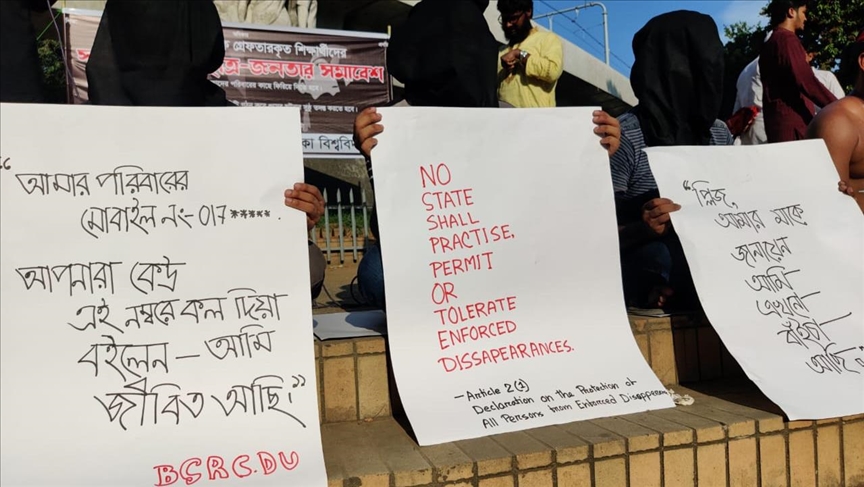 গ্রেফতারকৃত শিক্ষার্থীদের
ছাত্র-জনতার সমাবেশ
“আমার পরিবারের
মোবাইল নং- 017*****
আপনারা কেউ
এই নম্বরে কল দিয়া
বইলেন – আমি
জীবিত আছি।”
BSRC.DU
NO
STATE
SHALL
PRACTISE,
PERMIT
OR
TOLERATE
ENFORCED
DISSAPEARANCES.
—Article 2(1)
Declaration on the Protection of
All Persons from Enforced Disappear
“প্লিজ,
আমার মাকে
জানায়েন
আমি
এখনো
বাঁইচা
আছি”